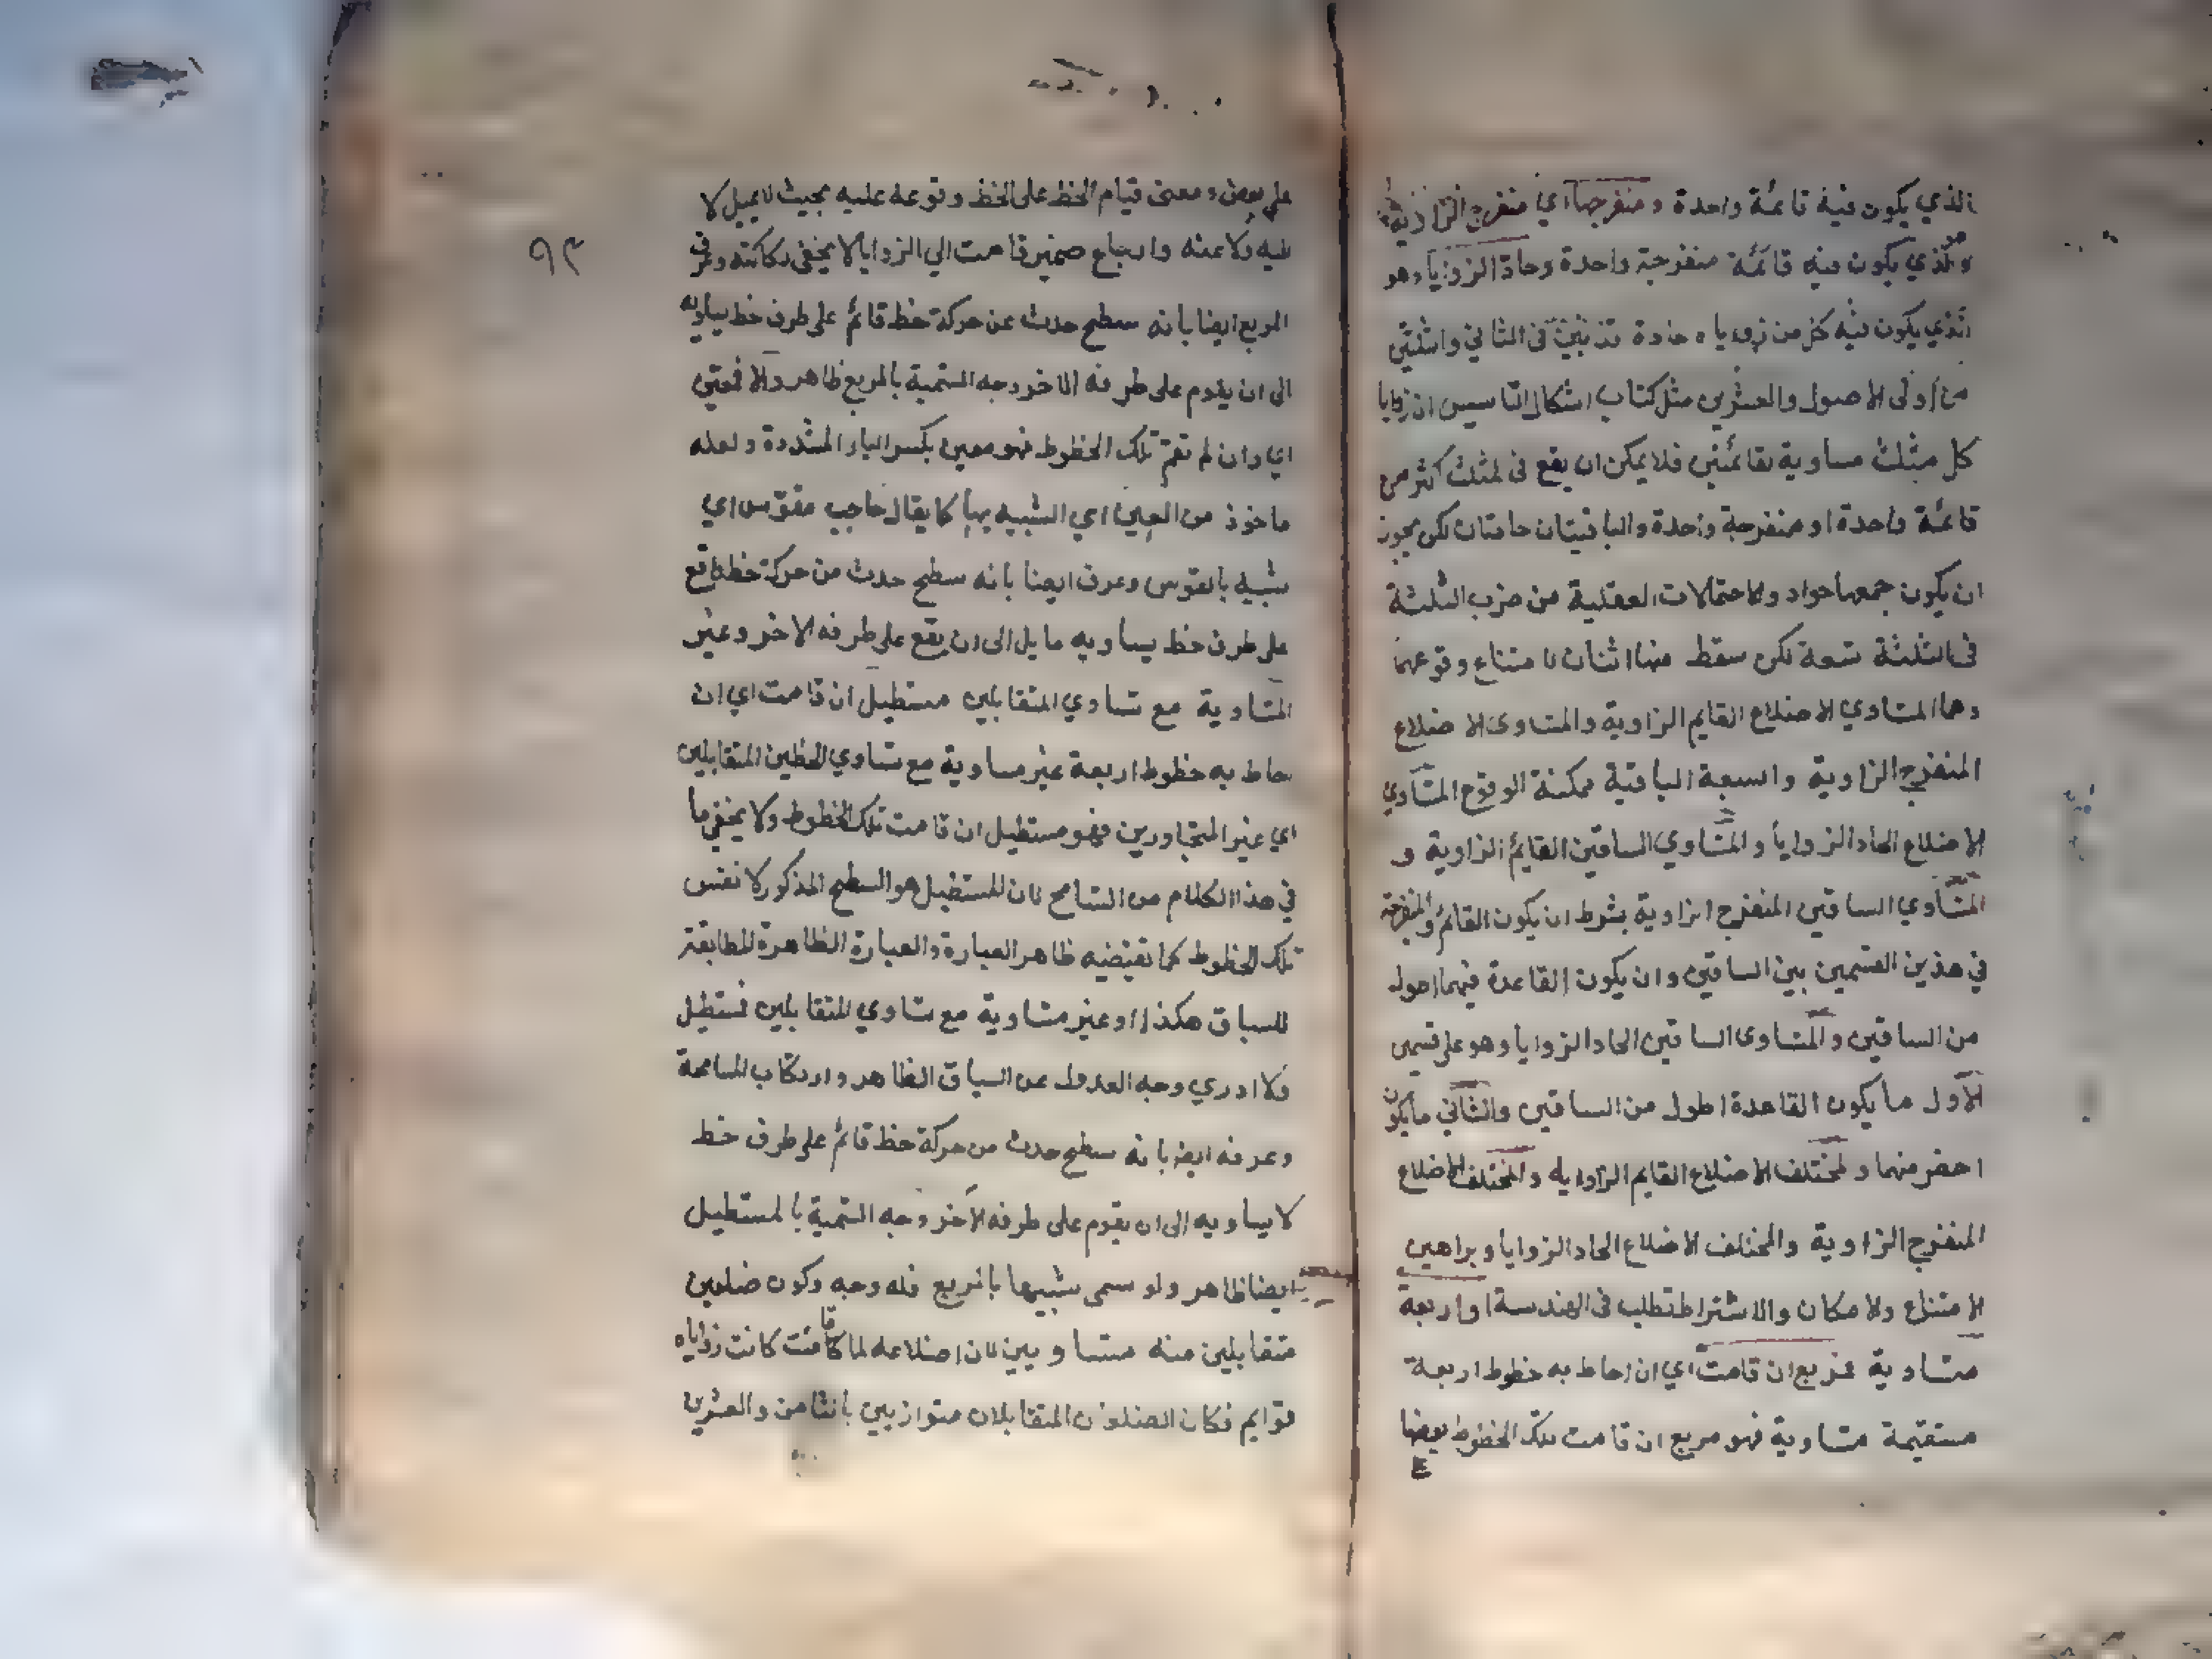 الذي يكون فيه قائمة واحدة ومنفرجها اي منفرج الزاوية
وهو الذي يكون فيه قائمة منفرجة واحدة وحاد الزوايا وهو
الذي يكون فيه كل من زواياه حادة قد تبين في الثاني والثلثين
من اولى الاصول والعشرين مثل كتاب اشكال التاسيس ان زوايا
كل مثلث مساوية لقائمتين فلا يمكن ان يقع في المثلث اكثر من
قائمة واحدة او منفرجة واحدة والباقيتان حادتان لكن يجوز
ان يكون جمعها حواد والاحتمالات العقلية من ضرب الثلثة
في الثلثة تسعة لكن سقط منها اثنان لامتناع وقوعهما
وهما المتساوي الاضلاع القايم الزاوية والمتساوى الاضلاع
المنفرج الزاوية والسبعة الباقية ممكنة الوقوع المتساوي
الاضلاع الحاد الزوايا والمتساوي الساقين القايم الزاوية و
المتساوي الساقين المنفرج الزاوية بشرط ان يكون القائم والمنفرجة
في هذين القسمين بين الساقين وان يكون القاعدة فيهما اطول
من الساقين والمتساوى الساقين الحاد الزوايا وهو على قسمين
الاول ما يكون القاعدة اطول من الساقين والثاني ما يكون
احضر منهما والمختلف الاضلاع القايم الزاوية والمختلف الاضلاع
المنفرج الزاوية والمختلف الاضلاع الحاد الزوايا وبراهين
الامتناع والامكان والاشتراط تطلب في الهندسة او اربعة
متساوية فمربع ان قامت اي ان احاط به خطوط اربعة
مستقيمة متساوية فهو مربع ان قامت تلك الخطوط بعضها
على بعض ومعنى قيام الخط على الخط وقوعه عليه بحيث لا يميل لا
اليه ولا عنه وارجاع ضمير قامت الي الزوايا لا يخفى ركاكته وعرف
المربع ايضا بانه سطح حدث عن حركة خط قائم على طرف خط يساويه
الى ان يقوم على طرفه الاخر وجه التسمية بالمربع ظاهر والا فمعين
اي وان لم تقم تلك الخطوط فهو معين بكسر الياء المشددة ولعله
ماخوذ من العين اي الشبيه بها كما يقال حاجب مقوس اي
شبيه بالقوس وعرف ايضا بانه سطح حدث من حركة خط واقع
على طرف خط يساويه مايل الى ان يقع على طرفه الاخر وغير
المتساوية مع تساوي المتقابلين مستطيل ان قامت اي ان
احاط به خطوط اربعة غير مساوية مع تساوي الخطين المتقابلين
اي غير المتجاورين فهو مستطيل ان قامت تلك الخطوط ولا يخفى ما
في هذا الكلام من التسامح لان المستطيل هو السطح المذكور لا نفس
تلك الخطوط كما تقتضيه ظاهر العبارة والعبارة الظاهرة المطابقة
للسباق هكذا او غير متساوية مع تساوي المتقابلين فستطيل
فلا ادري وجه العدول عن السياق الظاهر وارتكاب المسامحة
وعرفه ايضا بانه سطح حدث من حركة خط قائم على طرف خط
لا يساويه الى ان يقوم على طرفه الاخر وجه التسمية بالمستطيل
ايضا ظاهر ولو سمى شبيها بالمربع فله وجه وكون ضلعين
متقابلين منه متساويين لان اضلاعه لما قامت كانت زواياه
قوايم فكان الضلعان المتقابلان متوازيين بالثامن والعشرين
٩٣